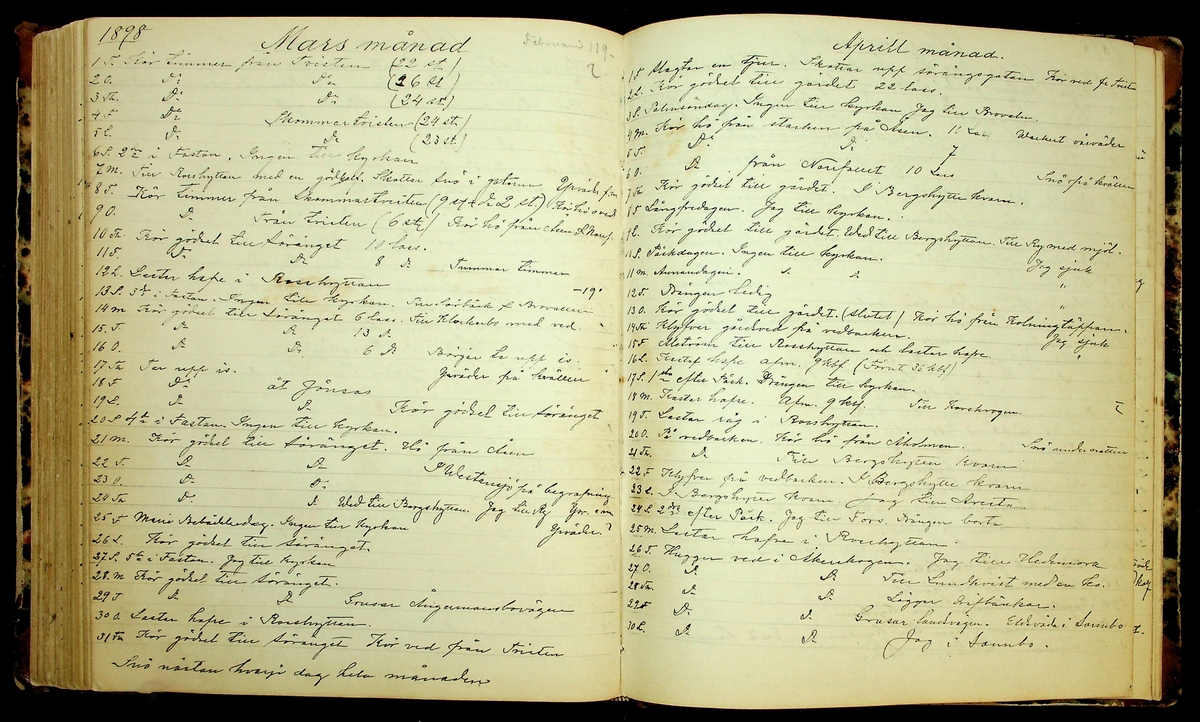 1898
Mars månad
Februari 119
1 T. Kör timmer från Tvisten (22 st)
2 O. Do Do (26 st)
3 Th. Do Do (24 st)
4 F. Do Skommartvisten (24 st)
5 L. Do Do (23 st)
6 S. 2dra i Fastan. Ingen till kyrkan
7 M. Till Rosshyttan med en gödkalf. Skottar snö i gatorna. Yrväder
8 T. Kör timmer från Skommartvisten (9 st) Do 2 st) Kör hö o ved
9 O. Do Från Tvisten (6 st) Kör hö från Åsen
10 Th. Kör gödsel till Söränget 10 lass.
11 F. Do Do 8 Do Tummar timmer
12 L. Lastar hafre i Rosshyttan —19°
13 S. 3dje i Fastan. Ingen till kyrkan.
14 M. Kör gödsel till Söränget 6 lass. Till Klockarbo med ved
15 T. Do Do 13 Do
16 O. Do Do 6 Do Börjar ta upp is.
17 Th. Tar upp is. Yrväder på kvällen
18 F. Do åt Jönsas
19 L. Do Do Kör gödsel till Söränget
20 S. 4de i Fastan. Ingen till kyrkan.
21 M. Kör gödsel till Söränget. Hö från Åsen
22 T. Do Do I Westansjö på begrafning
23 O. Do Do
24 Th. Do Do Ved till Bergshyttan. Jag till
25 F. Marie Bebådelsedag. Ingen till kyrkan Yrväder
26 L. Kör gödsel till Söränget.
27 S. 5te i Fastan. Jag till kyrkan
28 M. Kör gödsel till Söränget.
29 T. Do Do Grusar Ångermansbovägen
30 O. Lastar hafre i Rosshyttan.
31 Th. Kör gödsel till Söränget Kör ved från Tvisten
Snö nästan hvarje dag hela månaden
Aprill månad.
1 F. Slagtar en tjur. Skottar upp sörängsgatan Kör ved fr Tvisten
2 L. Kör gödsel till gärdet 22 lass.
3 S. Palmsöndag. Ingen till kyrkan Jag till Brovallen.
4 M. Kör hö från stacken på Åsen. 11 Lass Vackert vårväder
5 T. Do Do 7
6 O. Do från Norrfallet 10 Lass Snö på kvällen
7 Th. Kör gödsel till gärdet. I Bergshytte kvarn.
8 F. Långfredagen. Jag till kyrkan.
9 L. Kör gödsel till gärdet. Ved till Bergshyttan. Till Ry med mjöl.
10 S. Påskdagen. Ingen till kyrkan. Jag sjuk
11 M. Annandagen. Do Do "
12 T. Drängen ledig "
13 O. Kör gödsel till gärdet. (slutet) Kör hö från Holmingtäppan.
14 Th. Klyfver gärdved på vedbacken. Jag sjuk
15 F. Alström till Rosshyttan och lastar hafre "
16 L. Kastat hafre afm. 9 kbf (Förut 35 kbf)
17 S. 1sta efter Påsk. Drängen till kyrkan.
18 M. Kastar hafre. Afm. 9 kbf. Till Korskrogen.
19 T. Lastar råg i Rosshyttan.
20 O. På vedbacken. Kör hö från Åholmen. Snö under natten
21 Th. Do Till Bergshytte kvarn
22 F. Klyfver på vedbacken. I Bergshytte kvarn
23 L. I Bergshytte kvarn. Jag till Avesta
24 S. 2dra efter Påsk. Jag till Fors. Drängen borta
25 M. Lastar hafre i Rosshyttan.
26 T. Hugger ved i Åkerskogen. Jag till Hedemora
27 O. Do Do Till Lundqvist med en ko.
28 Th. Do Do Lägger drifbänkar.
29 F. Do Do Grusar landsvägen. Eldsvåda i Sannbo
30 L. Do Do Jag i Sannbo.